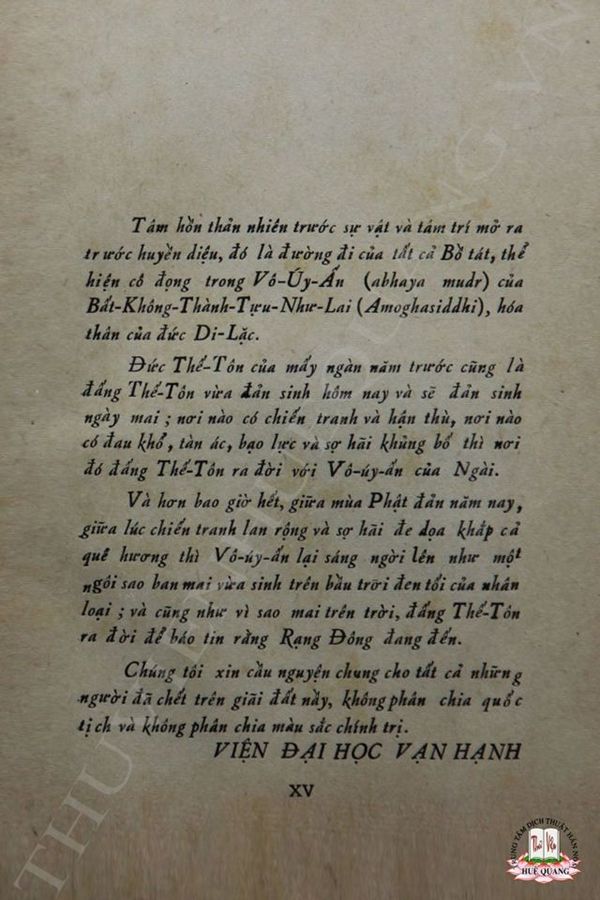 Tâm hồn thản nhiên trước sự vật và tâm trí mở ra
trước huyền diệu, đó là đường đi của tất cả Bồ tát, thể
hiện cô đọng trong Vô-Úy-Ấn (abhaya mudr) của
Bất-Không-Thành-Tựu-Như-Lai (Amoghasiddhi), hóa
thân của đức Di-Lặc.
Đức Thế-Tôn của mấy ngàn năm trước cũng là
đấng Thế-Tôn vừa đản sinh hôm nay và sẽ đản sinh
ngày mai ; nơi nào có chiến tranh và hận thù, nơi nào
có đau khổ, tàn ác, bạo lực và sợ hãi khủng bố thì nơi
đó đấng Thế-Tôn ra đời với Vô-úy-ấn của Ngài.
Và hơn bao giờ hết, giữa mùa Phật đản năm nay,
giữa lúc chiến tranh lan rộng và sợ hãi đe dọa khắp cả
quê hương thì Vô-úy-ấn lại sáng ngời lên như một
ngôi sao ban mai vừa sinh trên bầu trời đen tối của nhân
loại ; và cũng như vì sao mai trên trời, đấng Thế-Tôn
ra đời để báo tin rằng Rạng Đông đang đến.
Chúng tôi xin cầu nguyện chung cho tất cả những
người đã chết trên giãi đất nầy, không phân chia quốc
tịch và không phân chia màu sắc chính trị.
VIỆN ĐẠI HỌC VẠN HẠNH
XV
TRUNG TÂM DỊCH THUẬT HÁN NÔM
HUỆ QUANG